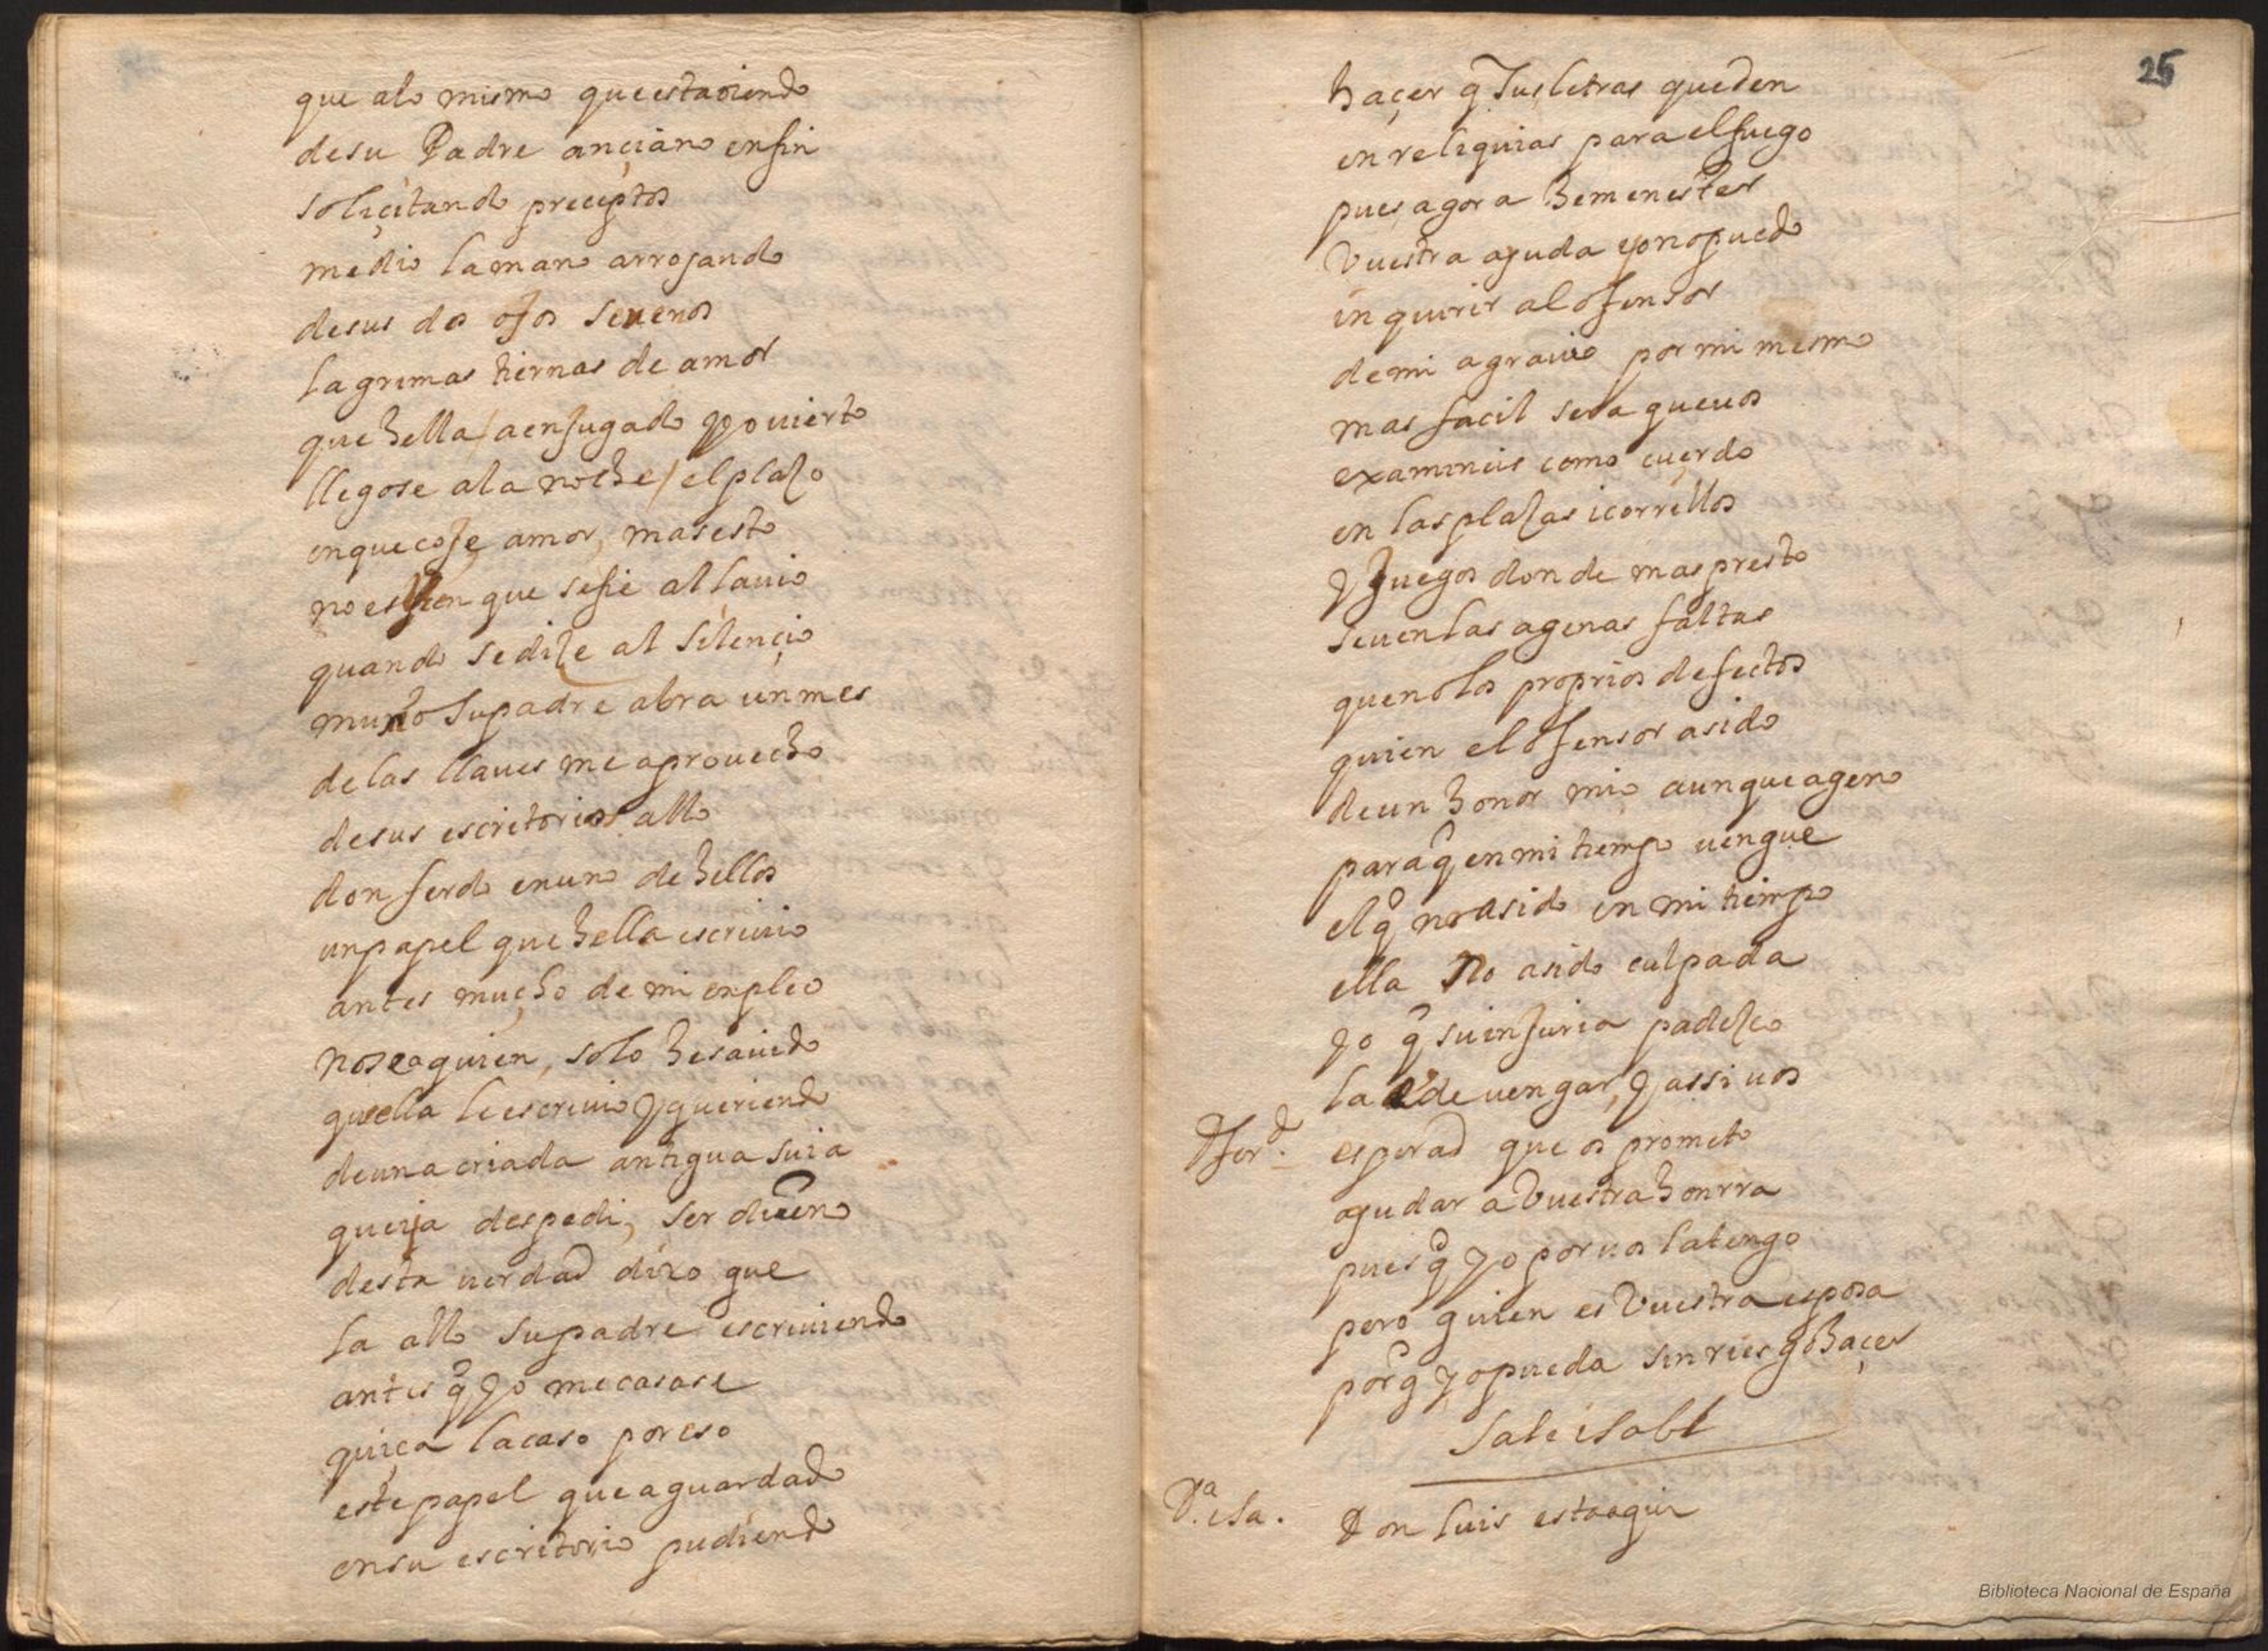 que alo mismo que estaviendo
desu Padre ançiano enfin
soliçitando preceptos
medio lamano arrojando
desus dos ojos serenos
lagrimas tiernas de amor
que hella / a enjugado yo vierto
llegose ala noche / el plaço
enque coje amor, mas esto
no es bien que sefie al lavio
quando sediçe al silençio
murio Supadre abra un mes
delas llaves me aprovecho
desus escritorios allo
don ferdo enuno de hellos
un papel que hella escrivio
antes mucho de mi enpleo
nosea quien, solo hesavido
quella le escrivio y queriendo
deuna criada antigua suia
que ya despedi, ser dueño
desta verdad dixo que
la allo supadre escriviendo
antes q̃ yo mecasase
quiça lacaso por eso
este papel que a guardado
ensu escritorio pudiendo
25
haçer q̃ sus letras queden
en reliquias para el fuego
pues agora he menester
Vuestra ayuda yo no puedo
inquirir al ofensor
demi agravio por mi mesmo
mas facil sera que vos
examineis como cuerdo
en las plaças i corrillos
y juegos donde mas presto
seven las agenas faltas
que no los proprios defectos
quien el ofensor asido
deun honor mio aunque ageno
para q̃ en mi tiempo vengue
el q̃ no asido en mi tiempo
ella no asido culpada
yo q̃ su injuria padeçco
la e de vengar, y assi vos
D fer.do esperad que os prometo
ayudar a Vuestra honrra
pues q̃ yo por vos latengo
pero quien es Vuestra esposa
porq̃ yo pueda sin riesgo haçer
Sale isabl
D.a isa. Don luis esta aqui
Biblioteca Nacional de España